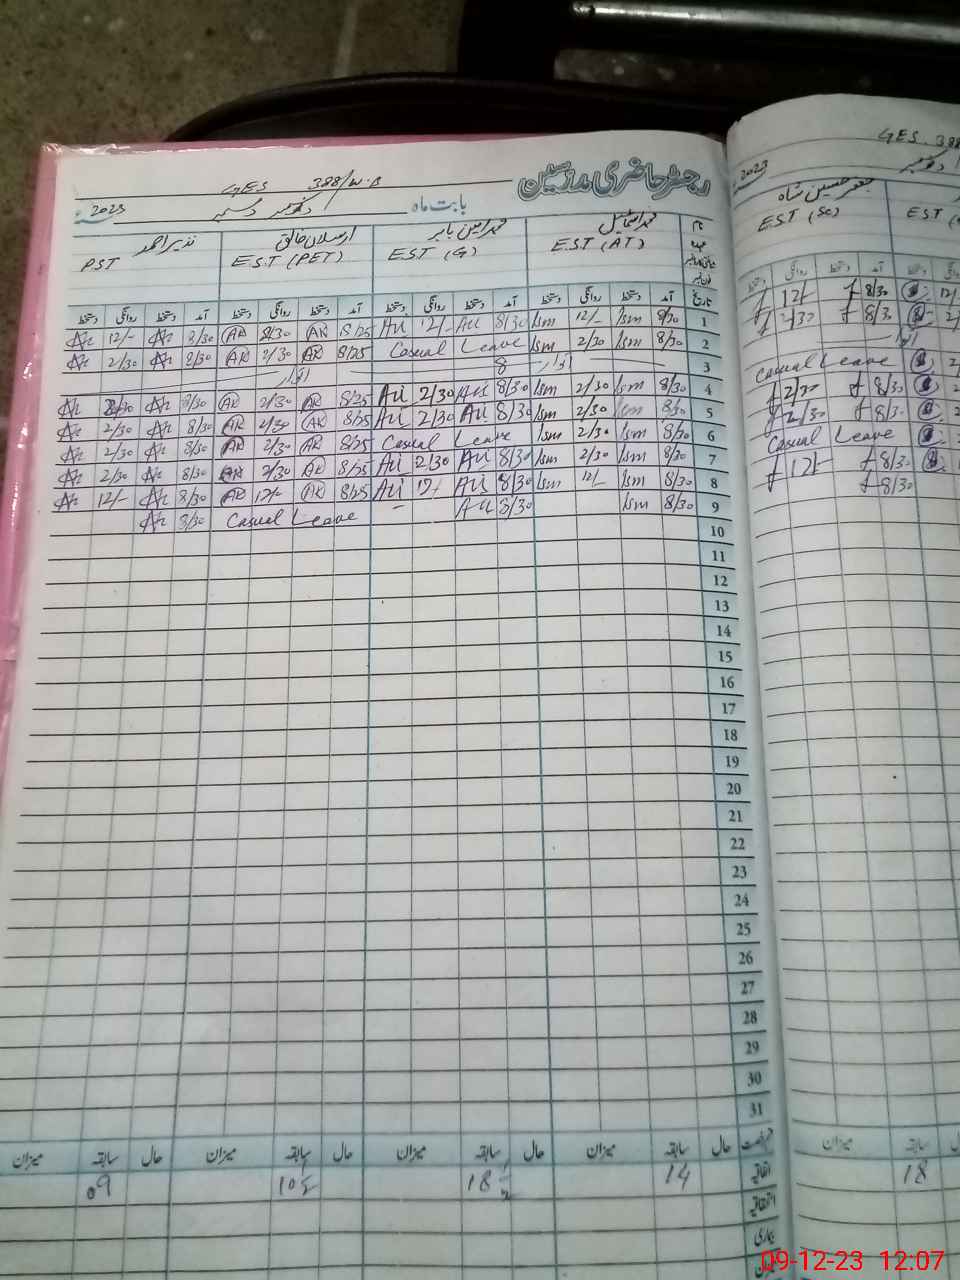 رجسٹر حاضری مدرسین
GES 388/W.B
بابت ماہ دسمبر 2023
محمد اسماعیل محمد امین بابر ارسلان خالق نذیر احمد
E.S.T (AT) E.S.T (G) E.S.T (PET) PST
تاریخ آمد دستخط روانگی دستخط آمد دستخط روانگی دستخط آمد دستخط روانگی دستخط آمد دستخط روانگی دستخط
1 8/30 Ism 12/- Ism 8/30 Au 12/- Au 8/25 AR 8/30 AR 8/30 12/-
2 8/30 Ism 2/30 Ism Casual Leave 8/25 AR 2/30 AR 8/30 2/30
3 اتوار
4 8/30 Ism 2/30 Ism 8/30 Au 2/30 Au 8/25 AR 2/30 AR 8/30 2/30
5 8/30 Ism 2/30 Ism 8/30 Au 2/30 Au 8/25 AR 2/30 AR 8/30 2/30
6 8/30 Ism 2/30 Ism Casual Leave 8/25 AR 2/30 AR 8/30 2/30
7 8/30 Ism 2/30 Ism 8/30 Au 2/30 Au 8/25 AR 2/30 AR 8/30 2/30
8 8/30 Ism 12/- Ism 8/30 Au 12/- Au 8/25 AR 12/- AR 8/30 12/-
9 8/30 Ism 8/30 Au Casual Leave 8/30
10
11
12
13
14
15
16
17
18
19
20
21
22
23
24
25
26
27
28
29
30
31
حال سابقہ میزان حال سابقہ میزان حال سابقہ میزان حال سابقہ میزان
اتفاقیہ 14 18 10 09
بیماری
GES 388
2023
جعفر حسین شاہ
E.S.T (SC)
آمد دستخط روانگی دستخط
8/30 12/-
8/30 2/30
اتوار
Casual Leave
8/30 2/30
8/30 2/30
Casual Leave
8/30 12/-
8/30
سابقہ میزان
18
09-12-23 12:07